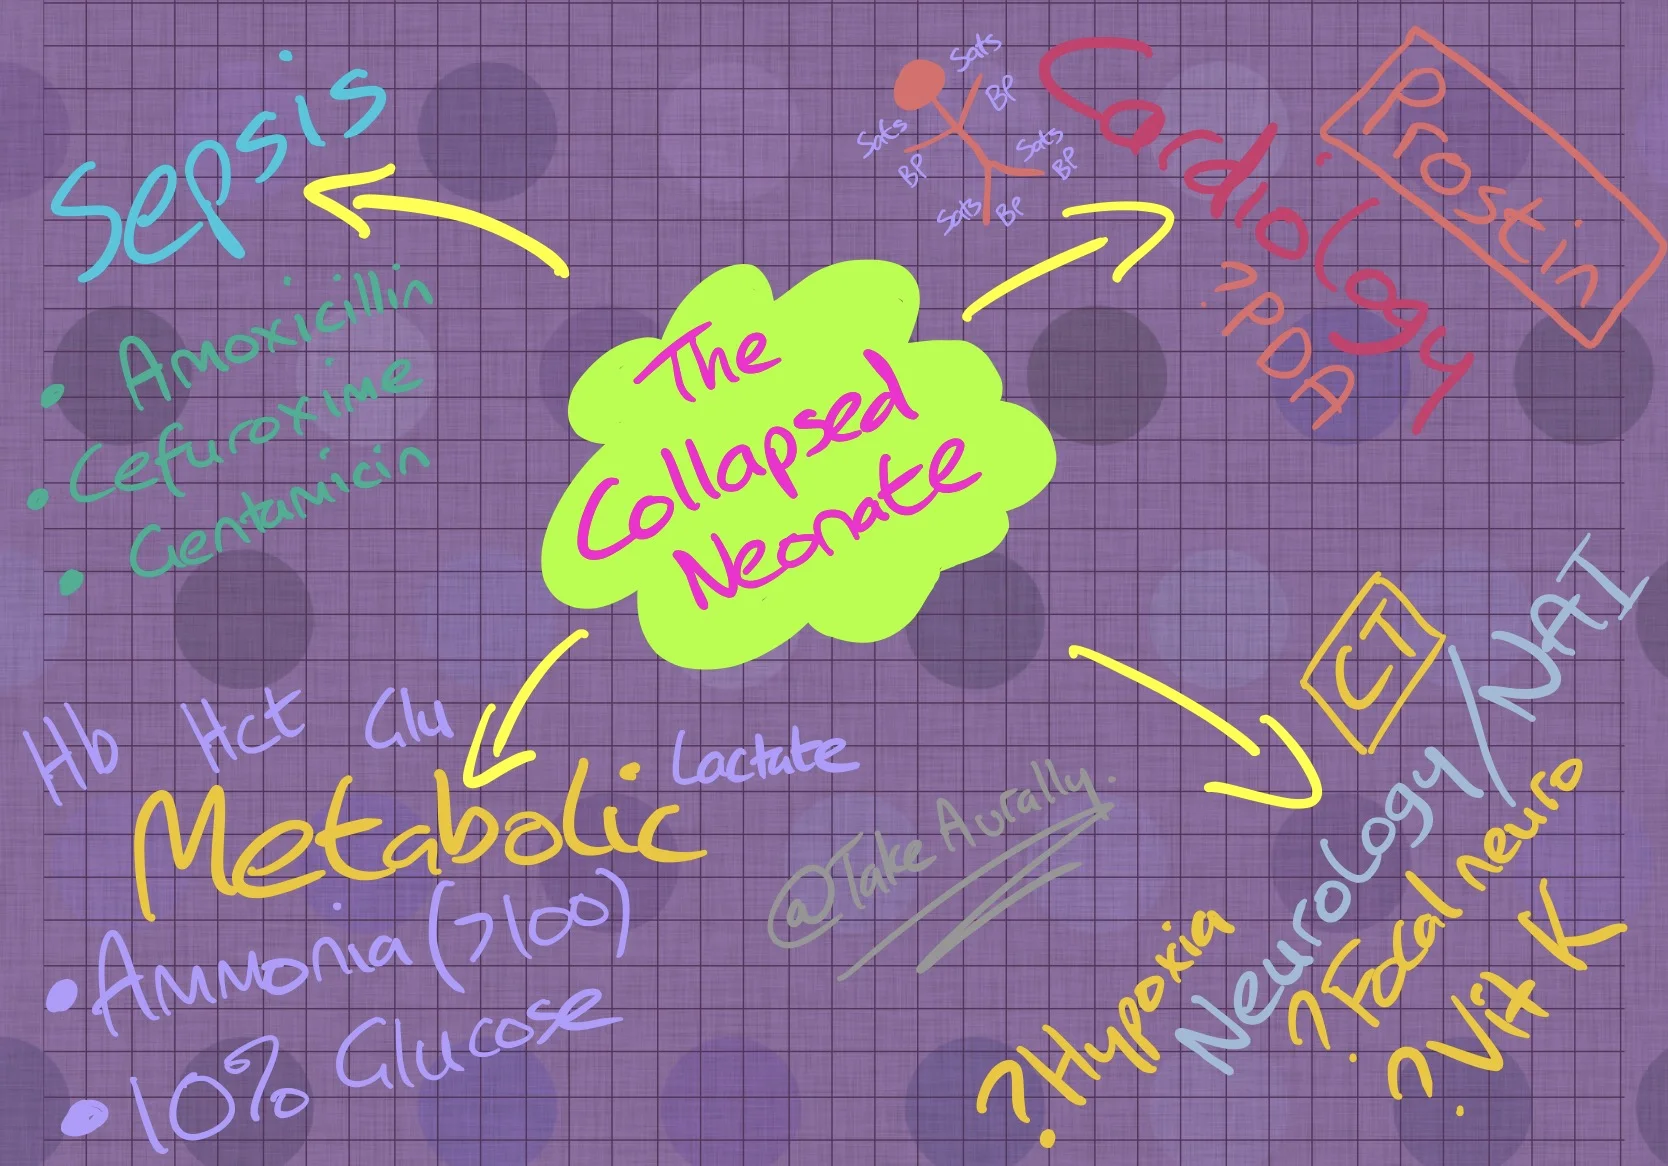 The
Collapsed
Neonate
Sepsis
• Amoxicillin
• Cefuroxime
• Gentamicin
Sats
BP
Sats
BP
Sats
BP
Sats
BP
Cardiology
Prostin
?PDA
Hb Hct Glu
Lactate
Metabolic
• Ammonia (>100)
• 10% Glucose
@TakeAurally.
CT
Neurology/NAI
?Hypoxia
?Focal neuro
?Vit K